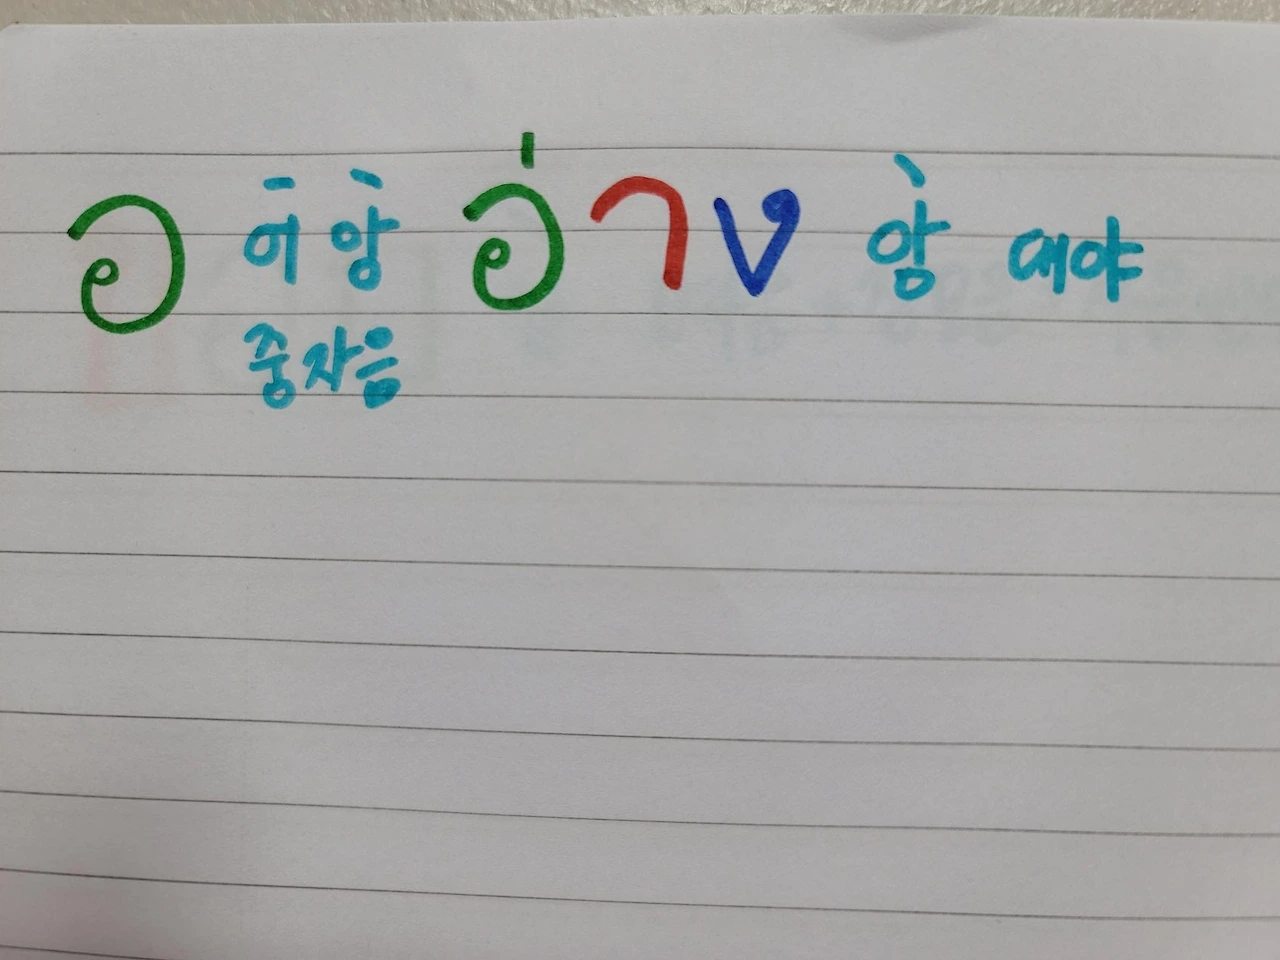 อ 어 앙 อ่าง 앙 대야
중자음